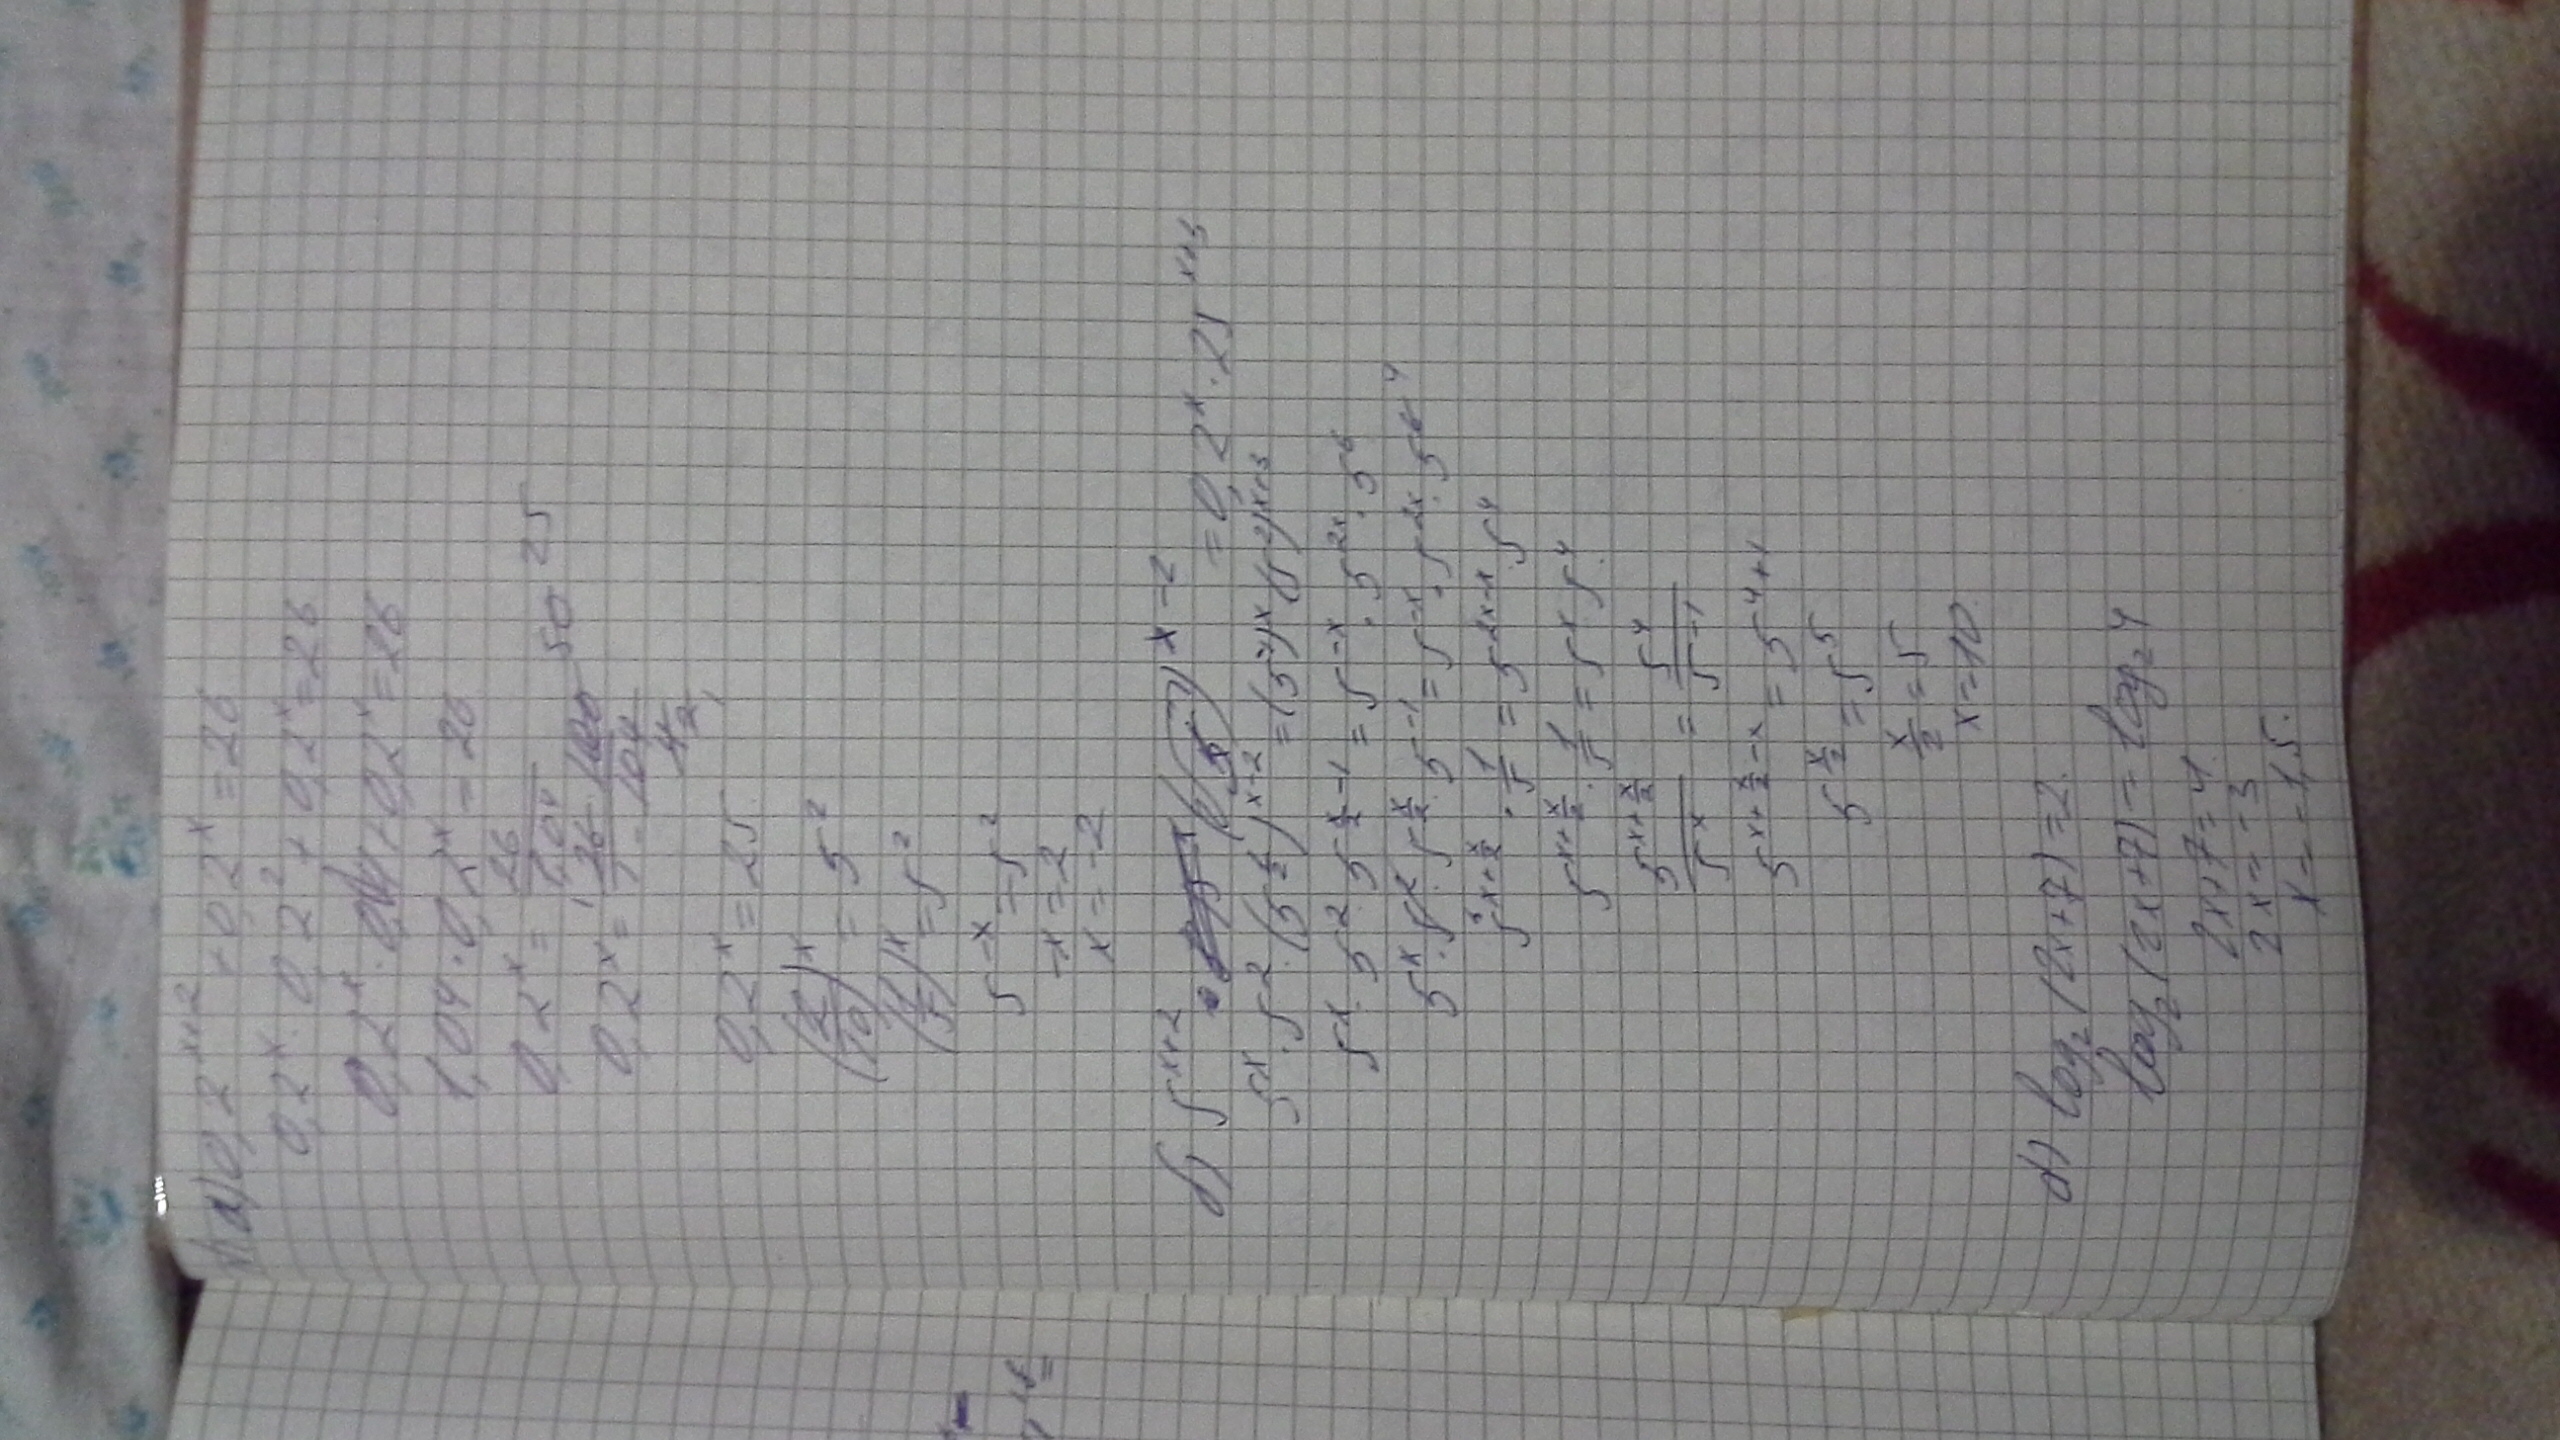 а) 0,2^{x+2} + 0,2^x = 26
0,2^x · 0,2^2 + 0,2^x = 26
0,2^x · 0,04 + 0,2^x = 26
1,04 · 0,2^x = 26
0,2^x = 26/1,04
0,2^x = 26 · 100/104 50 25
0,2^x = 25
(2/10)^x = 5^2
(1/5)^x = 5^2
5^{-x} = 5^2
-x = 2
x = -2
б) 5^{x+2} · (√5)^{x-2} = 0,2^x · 25^{x+3}
5^x · 5^2 · (5^{1/2})^{x-2} = (5^{-1})^x (5^2)^{x+3}
5^x · 5^2 · 5^{x/2 - 1} = 5^{-x} · 5^{2x} · 5^6
5^x · 5^2 · 5^{x/2} · 5^{-1} = 5^{-x} · 5^{2x} · 5^6 4
5^{x+x/2} · 1/5 = 5^{2x-x} · 5^4
5^{x+x/2} · 1/5 = 5^x · 5^4
5^{x+x/2}/5^x = 5^4/5^{-1}
5^{x+x/2-x} = 5^{4+1}
5^{x/2} = 5^5
x/2 = 5
x = 10
log_2 (2x+7) = 2
log_2 (2x+7) = log_2 4
2x+7 = 4
2x = -3
x = -1,5.